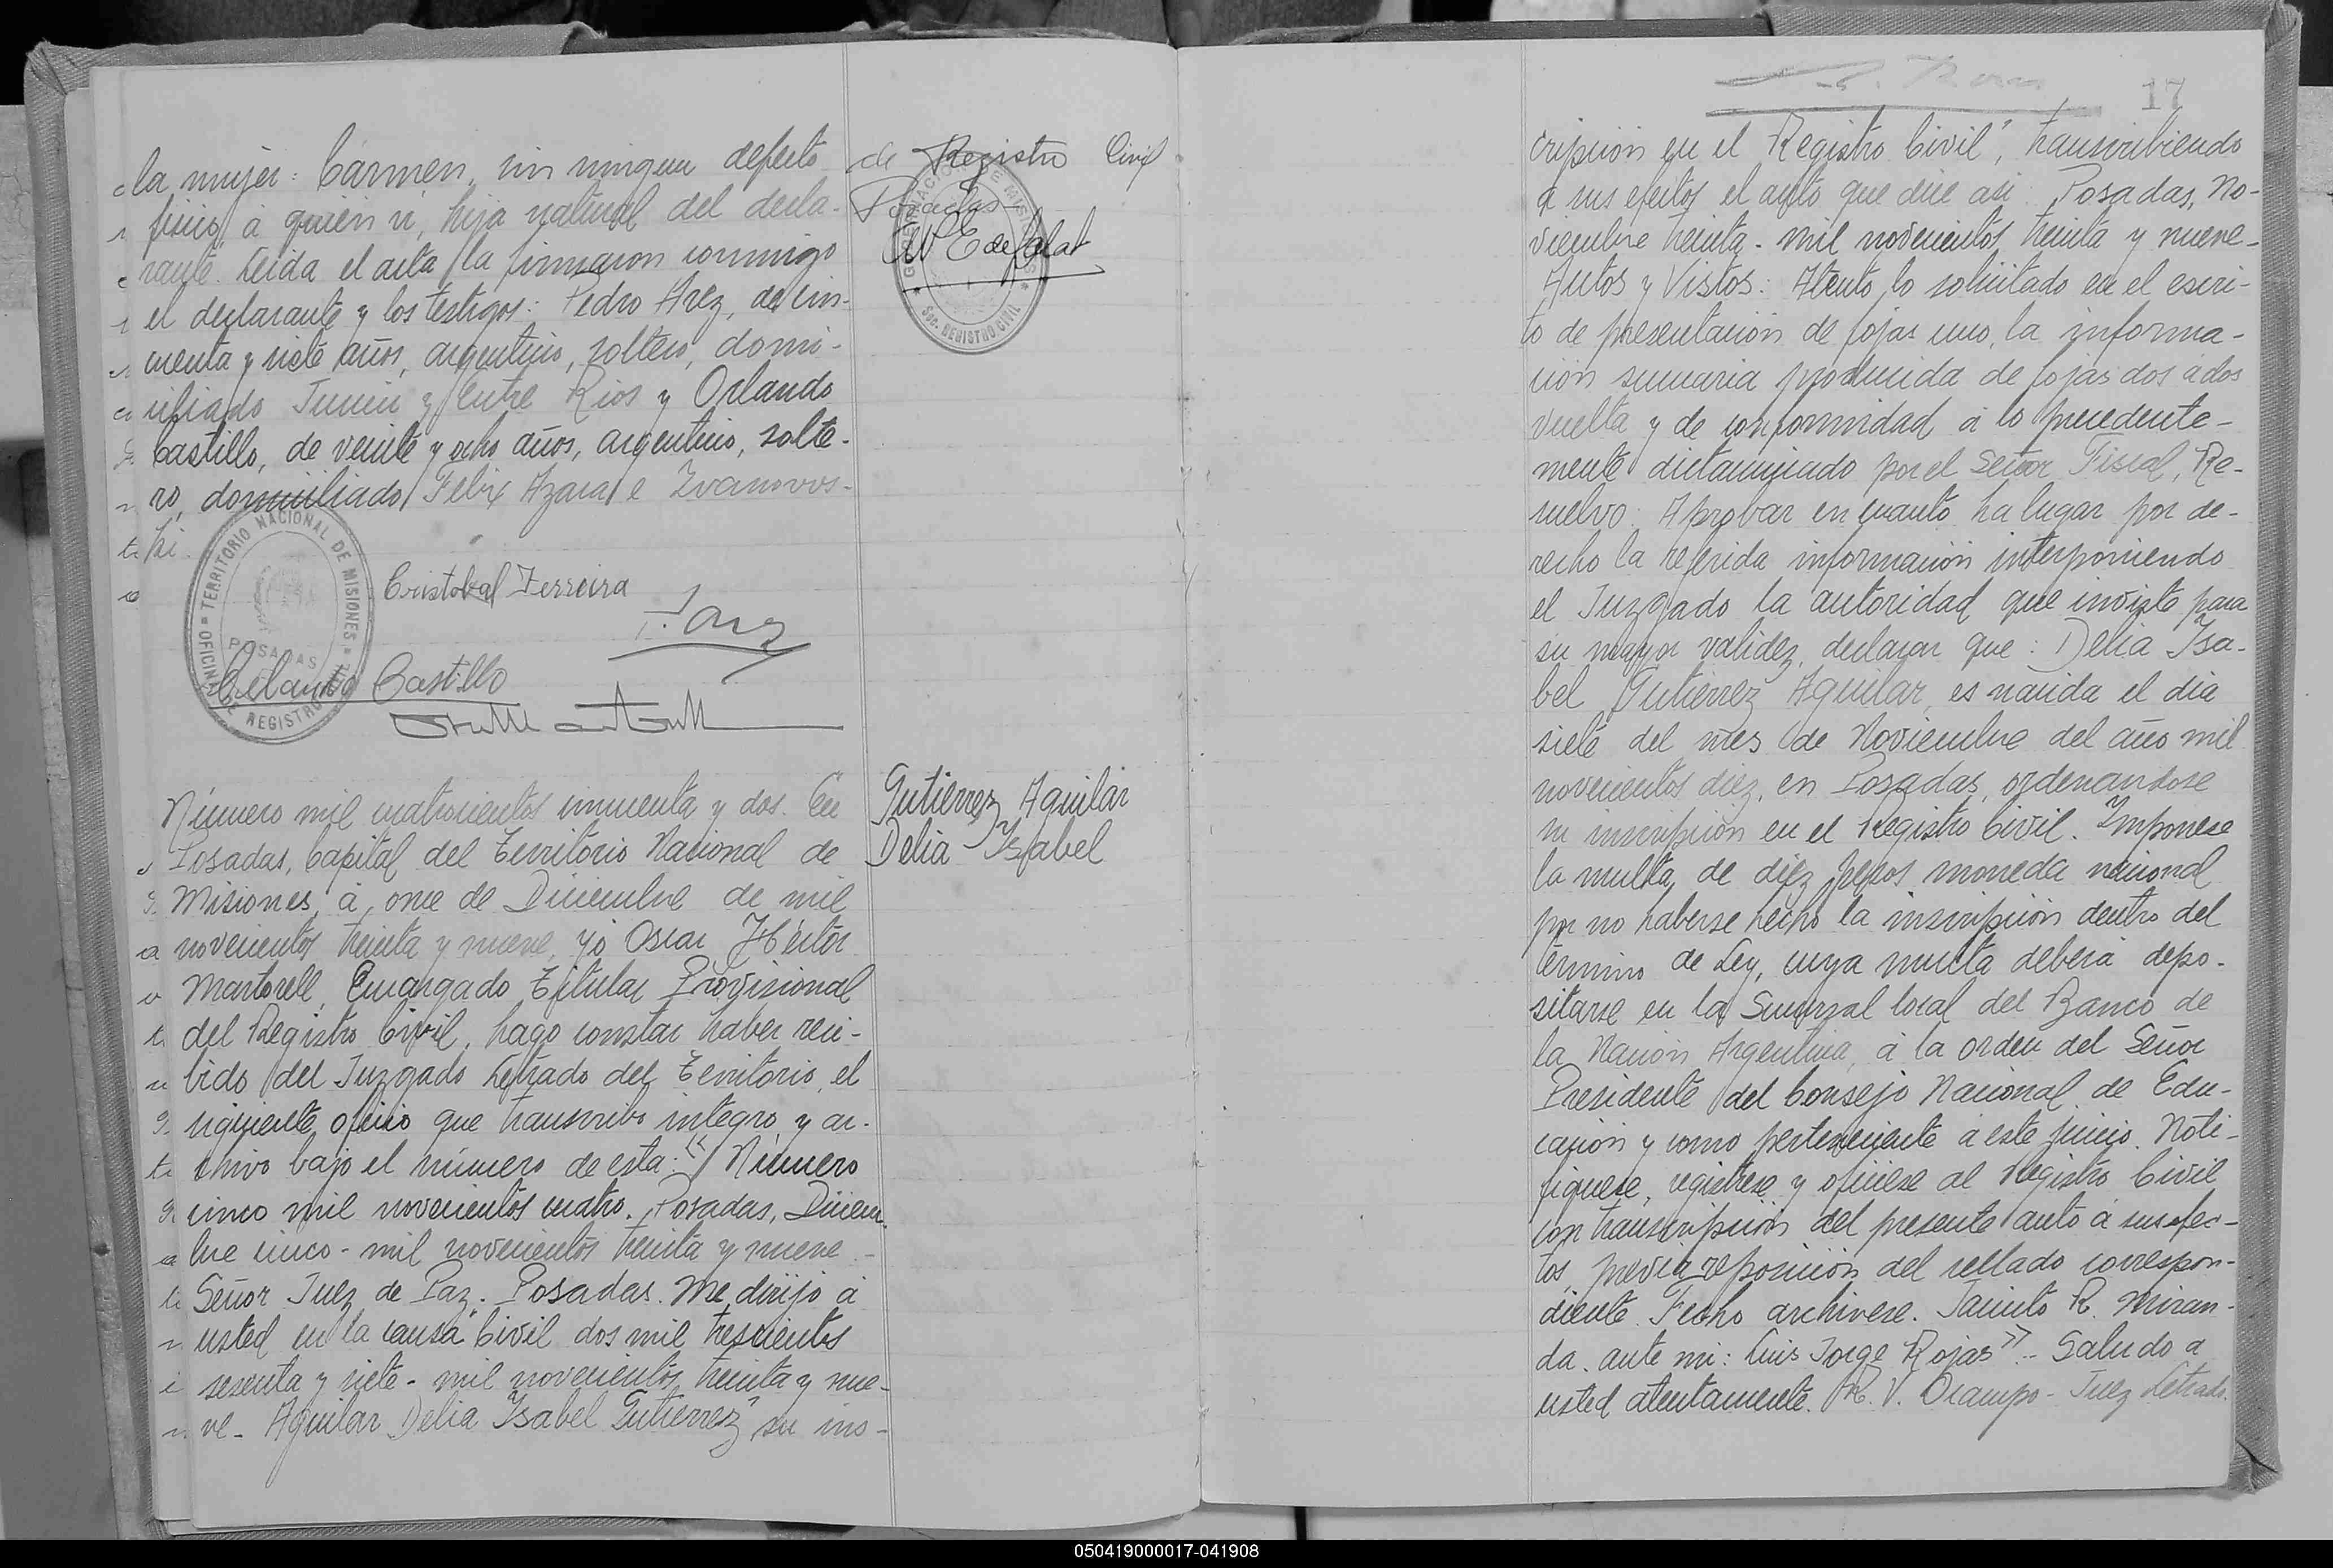 la mujer: Cármen, sin ningun defecto
fisico, á quién ví, hija natural del decla-
rante. Leida el acta la firmaron conmigo
el declarante y los testigos: Pedro Arez, de cin-
cuenta y siete años, argentino, soltero, domi-
ciliado Junin y Entre Rios y Orlando
Castillo, de veinte y ocho años, argentino, solte-
ro, domiciliado Felix Azara e Ivanovos-
ki.
TERRITORIO NACIONAL DE MISIONES
POSADAS
OFICINA DE REGISTRO CIVIL
Cristobal Ferreira
Orlando Castillo
de Registro Civil
Posadas
GOBERNACION DE MISIONES
Sec. REGISTRO CIVIL
Número mil cuatrocientos cincuenta y dos. En
Posadas, Capital del Territorio Nacional de
Misiones, á once de Diciembre de mil
novecientos treinta y nueve, yo Oscar Héctor
Martorell, Encargado Titular Provisional
del Registro Civil, hago constar haber reci-
bido del Juzgado Letrado del Territorio, el
siguiente oficio que transcribo integro y ar-
chivo bajo el número de esta: "Número
cinco mil novecientos cuatro. Posadas, Diciem-
bre cinco - mil novecientos treinta y nueve -
Señor Juez de Paz. Posadas. Me dirijo á
usted en la causa Civil dos mil trescientos
sesenta y siete - mil novecientos treinta y nue-
ve - Aguilar Delia Ysabel Gutierrez, su ins-
Gutierrez Aguilar
Delia Ysabel
17
cripción en el Registro Civil", transcribiendo
a sus efectos el auto que dice asi: Posadas, No-
viembre treinta - mil novecientos treinta y nueve -
Autos y Vistos: Atento lo solicitado en el escri-
to de presentación de fojas uno, la informa-
ción sumaria producida de fojas dos á dos
vuelta y de conformidad á lo precedente-
mente dictaminado por el Señor Fiscal, Re-
suelvo: Aprobar en cuanto ha lugar por de-
recho la referida información interponiendo
el Juzgado la autoridad que inviste para
su mayor validez, declarar que: Delia Isa-
bel Gutierrez Aguilar, es nacida el dia
siete del mes de Noviembre del año mil
novecientos diez, en Posadas, ordenandose
su inscripción en el Registro Civil. Imponese
la multa de diez pesos moneda nacional
por no haberse hecho la inscripción dentro del
término de Ley, cuya multa deberá depo-
sitarse en la Sucursal local del Banco de
la Nación Argentina, á la orden del Señor
Presidente del Consejo Nacional de Edu-
cación y como perteneciente á este juicio. Noti-
fiquese, registrese y oficiese al Registro Civil
con transcripción del presente auto á sus efec-
tos, previa reposición del sellado correspon-
diente. Fecho archivese. Jacinto R. Miran-
da. ante mi: Luis Jorge Rojas" - Saludo a
usted atentamente. R. V. Ocampo - Juez Letrado.
050419000017-041908